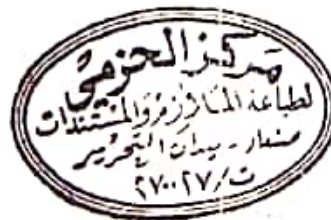 مركز الحزمي
لطباعة الملازم والمستندات
صنعاء - ميدان التحرير
ت/ ٢٧٠٠٢٧